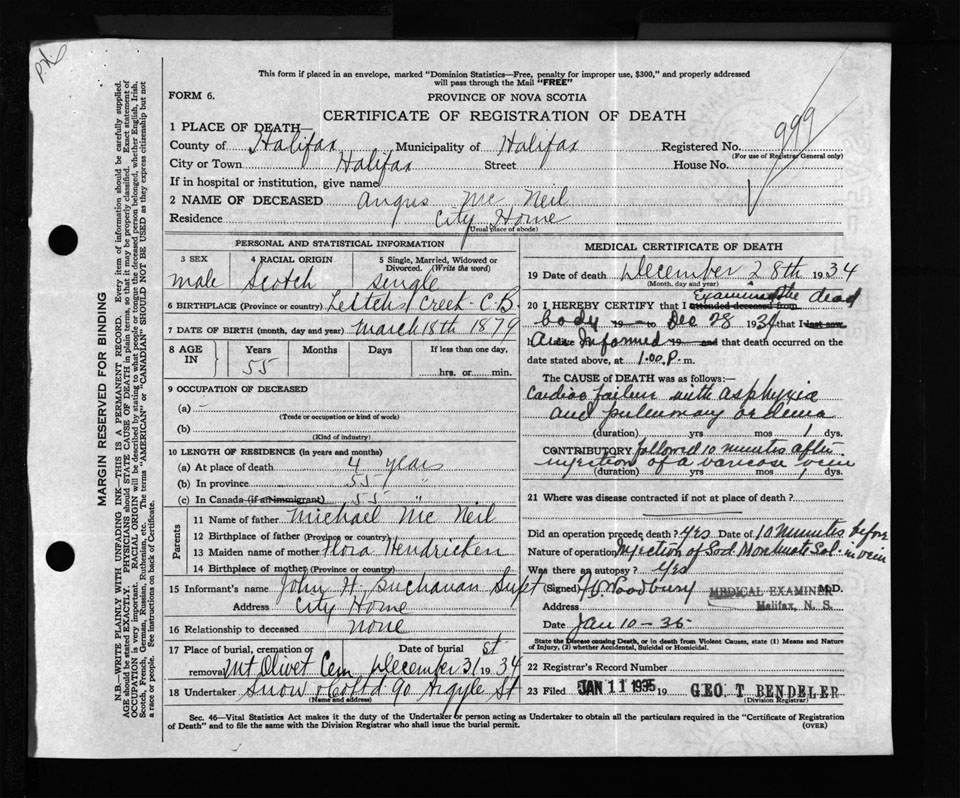 P.H.
This form if placed in an envelope, marked "Dominion Statistics—Free, penalty for improper use, $300," and properly addressed
will pass through the Mail "FREE"
FORM 6.
PROVINCE OF NOVA SCOTIA
CERTIFICATE OF REGISTRATION OF DEATH
999
1 PLACE OF DEATH—
County of Halifax Municipality of Halifax Registered No.
(For use of Registrar General only)
City or Town Halifax Street House No.
If in hospital or institution, give name
2 NAME OF DECEASED Angus Mc Neil
Residence City Home
(Usual place of abode)
PERSONAL AND STATISTICAL INFORMATION
3 SEX 4 RACIAL ORIGIN 5 Single, Married, Widowed or
Divorced. (Write the word)
male Scotch single
6 BIRTHPLACE (Province or country) Leitchs Creek C.B.
7 DATE OF BIRTH (month, day and year) March 18th 1879
8 AGE IN Years Months Days If less than one day,
55 hrs. or min.
9 OCCUPATION OF DECEASED
(a) -
(Trade or occupation or kind of work)
(b)
(Kind of industry)
10 LENGTH OF RESIDENCE (in years and months)
(a) At place of death 4 years
(b) In province 55 "
(c) In Canada (if an immigrant) 55 "
Parents
11 Name of father Michael Mc Neil
12 Birthplace of father (Province or country)
13 Maiden name of mother Flora Hendricken
14 Birthplace of mother (Province or country)
15 Informant's name John H. Buchanan Supt
Address City Home
16 Relationship to deceased none
17 Place of burial, cremation or Date of burial
removal Mt Olivet Cem December 31st 1934
18 Undertaker Snow & Co Ltd 90 Argyle St
(Name and address)
MEDICAL CERTIFICATE OF DEATH
19 Date of death December 28th 1934
(Month, day and year)
20 I HEREBY CERTIFY that I attended deceased from Examined the dead
body 19 to Dec 28 1934 that I last saw
h alive Informed 19 and that death occurred on the
date stated above, at 1.00 P. m.
The CAUSE OF DEATH was as follows:—
Cardiac failure with asphyxia
and pulmonary oedema
(duration) yrs mos 1 dys.
CONTRIBUTORY followed 10 minutes after
injection of a varicose vein
(duration) yrs mos 1 dys.
21 Where was disease contracted if not at place of death?
Did an operation precede death? Yes Date of 10 minutes before
Nature of operation Injection of Sod. Morrhuate Sol. in vein
Was there an autopsy? Yes
(Signed) Woodbury M.D.
MEDICAL EXAMINER
Halifax, N. S.
Address
Date Jan 10-35
State the Disease causing Death, or in death from Violent Causes, state (1) Means and Nature
of Injury, (2) whether Accidental, Suicidal or Homicidal.
22 Registrar's Record Number
23 Filed JAN 11 1935 19 GEO. T BENDELER
(Division Registrar)
Sec. 46—Vital Statistics Act makes it the duty of the Undertaker or person acting as Undertaker to obtain all the particulars required in the "Certificate of Registration
of Death" and to file the same with the Division Registrar who shall issue the burial permit.
(OVER)
MARGIN RESERVED FOR BINDING
N.B.—WRITE PLAINLY WITH UNFADING INK—THIS IS A PERMANENT RECORD. Every item of information should be carefully supplied.
AGE should be stated EXACTLY. PHYSICIANS should STATE CAUSE OF DEATH in plain terms, so that it may be properly classified. Exact statement of
OCCUPATION is very important. RACIAL ORIGIN will be described by stating to what people or tongue the deceased person belonged, whether English, Irish,
Scotch, French, German, Russian, Ruthenian, etc. The terms "AMERICAN" or "CANADIAN" SHOULD NOT BE USED as they express citizenship but not
a race or people. See instructions on back of Certificate.